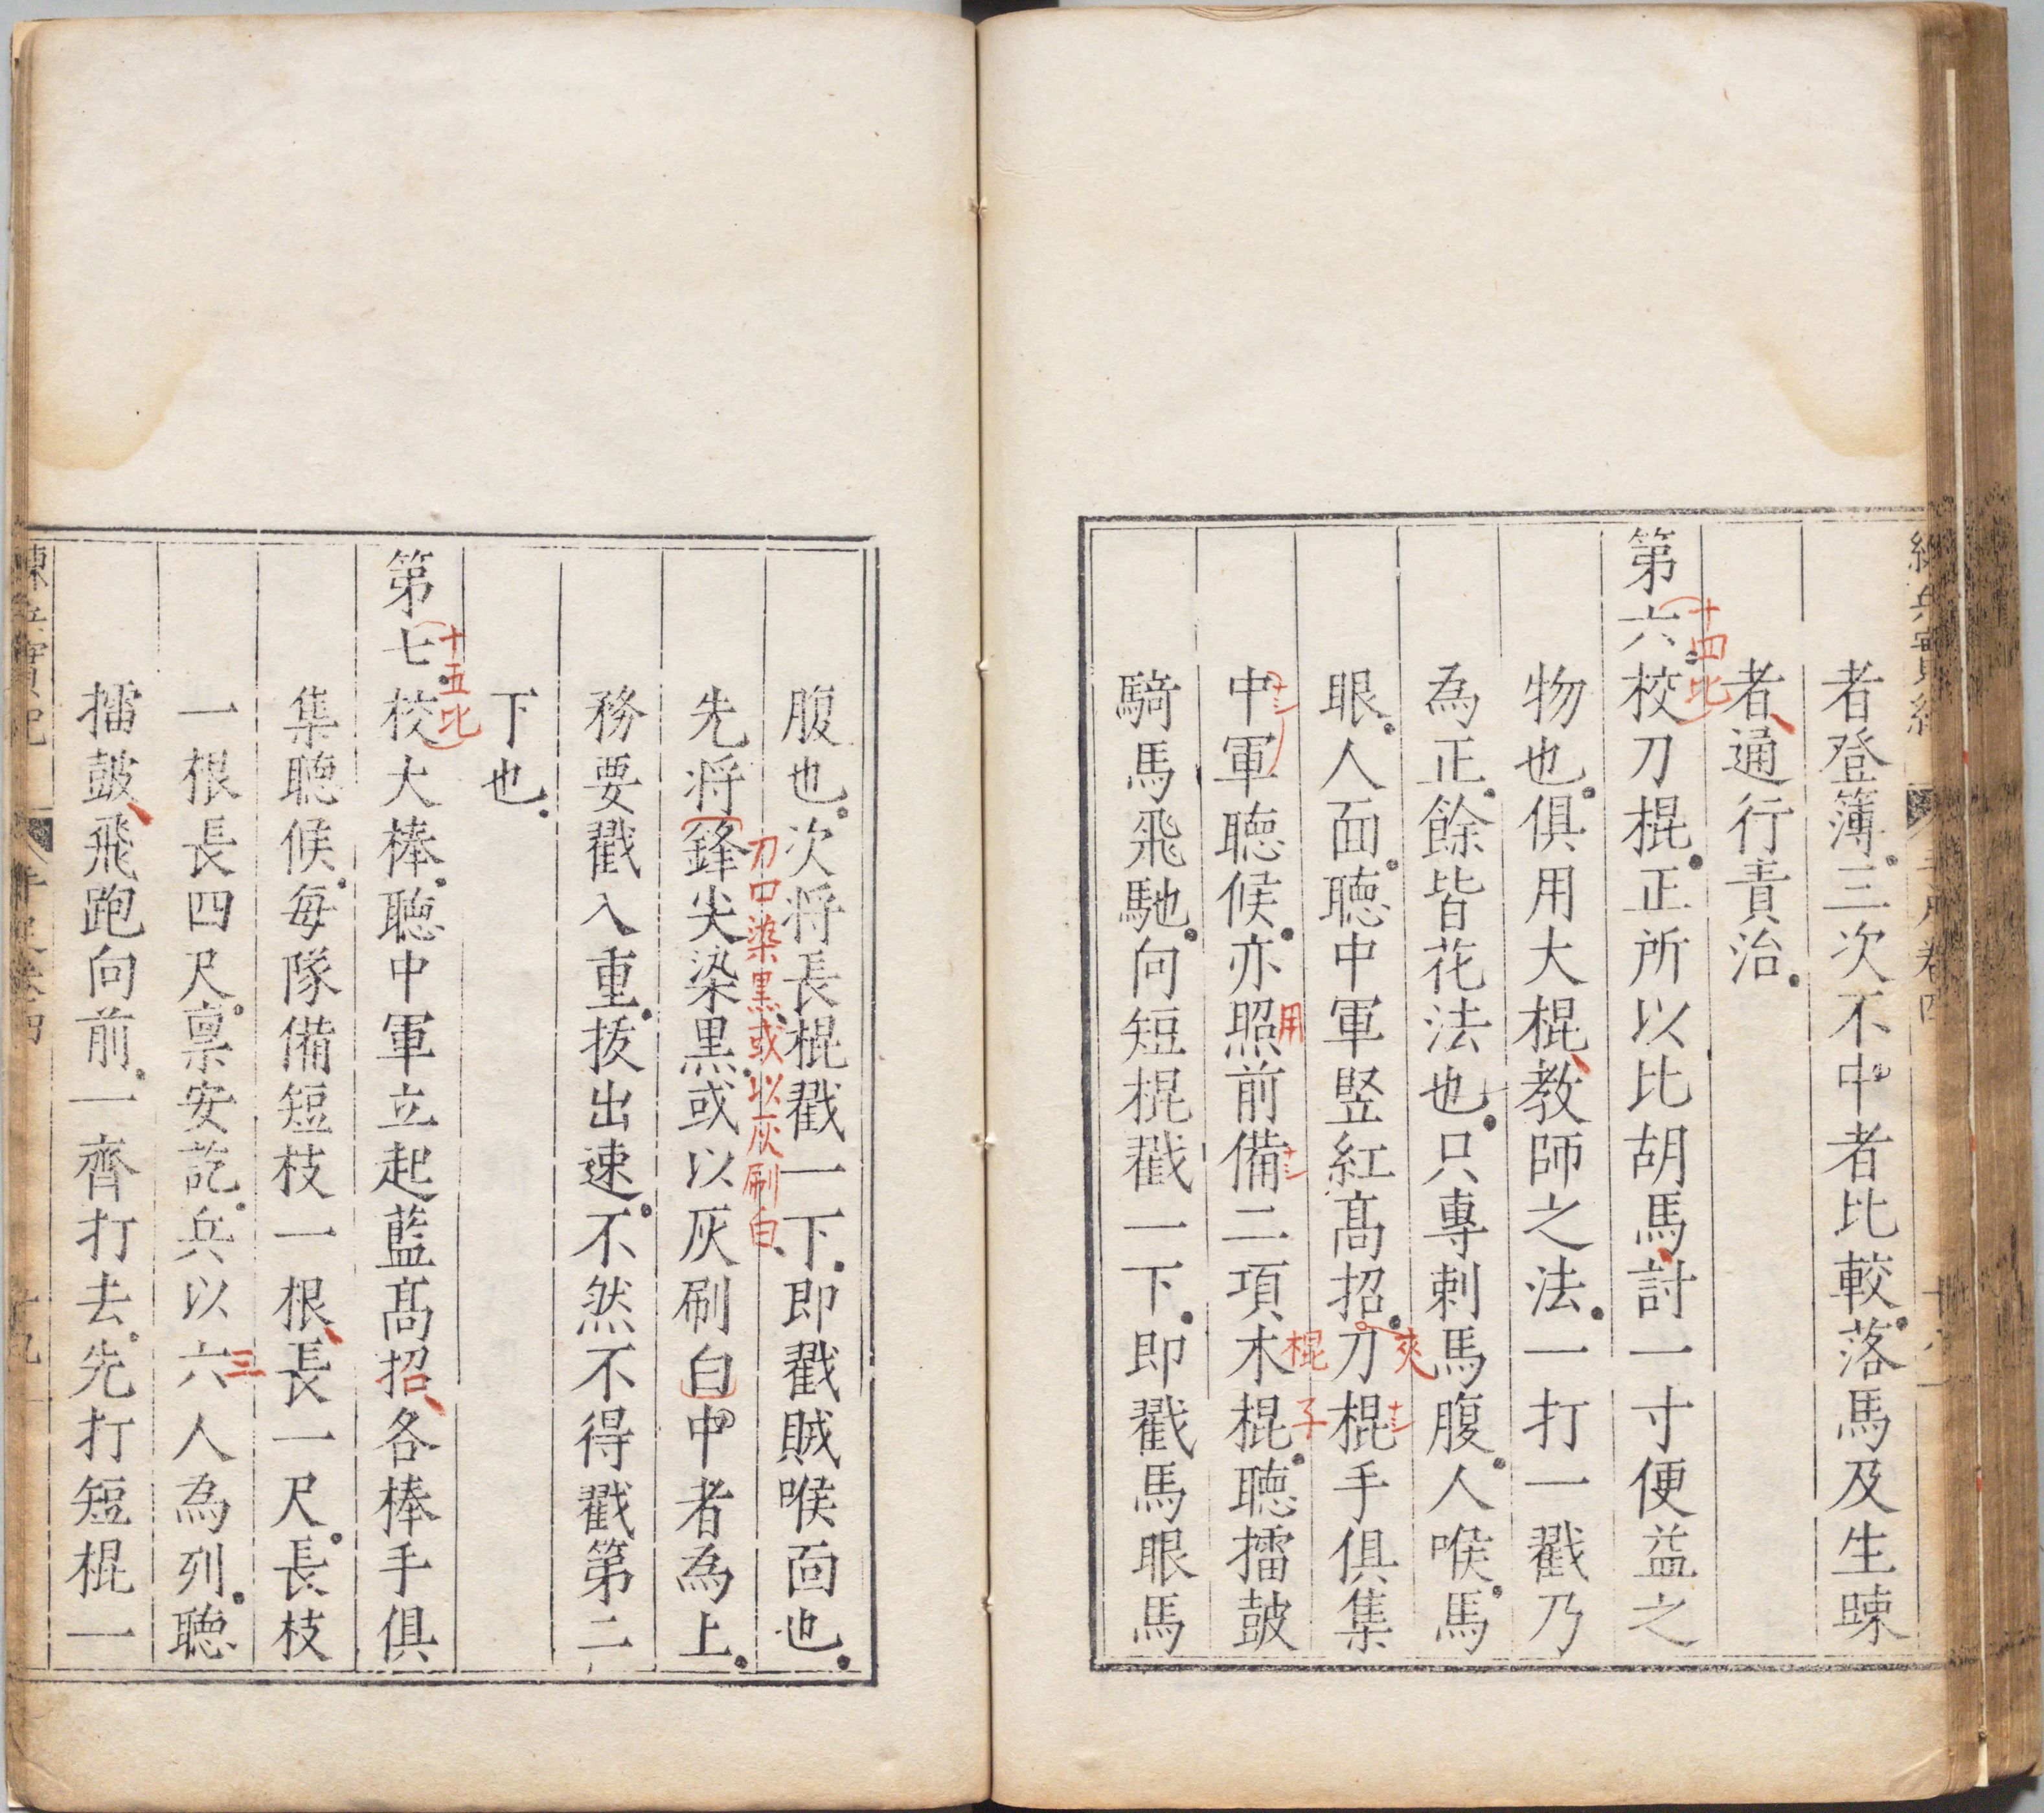 者登簿三次不中者比較落馬及生踈
者通行責治
第六校刀棍正所以比胡馬討一寸便益之
十四比
物也俱用大棍教師之法一打一戳乃
為正餘皆花法也只專刺馬腹人喉馬
夾
眼人面聽中軍竪紅高招刀棍手俱集
中軍聽候亦照前備二項木棍聽擂鼓
用
棍子
騎馬飛馳向短棍戳一下即戳馬眼馬
腹也次将長棍戳一下即戳賊喉面也
先将鋒尖染黒或以灰刷白中者為上
刀口染黒或以灰刷白
務要戳入重拔出速不然不得戳第二
下也
第七校大棒聽中軍立起藍高招各棒手俱
十五比
集聽候每隊備短枝一根長一尺長枝
一根長四尺禀安訖兵以六人為列聽
三
擂鼓飛跑向前一齊打去先打短棍一